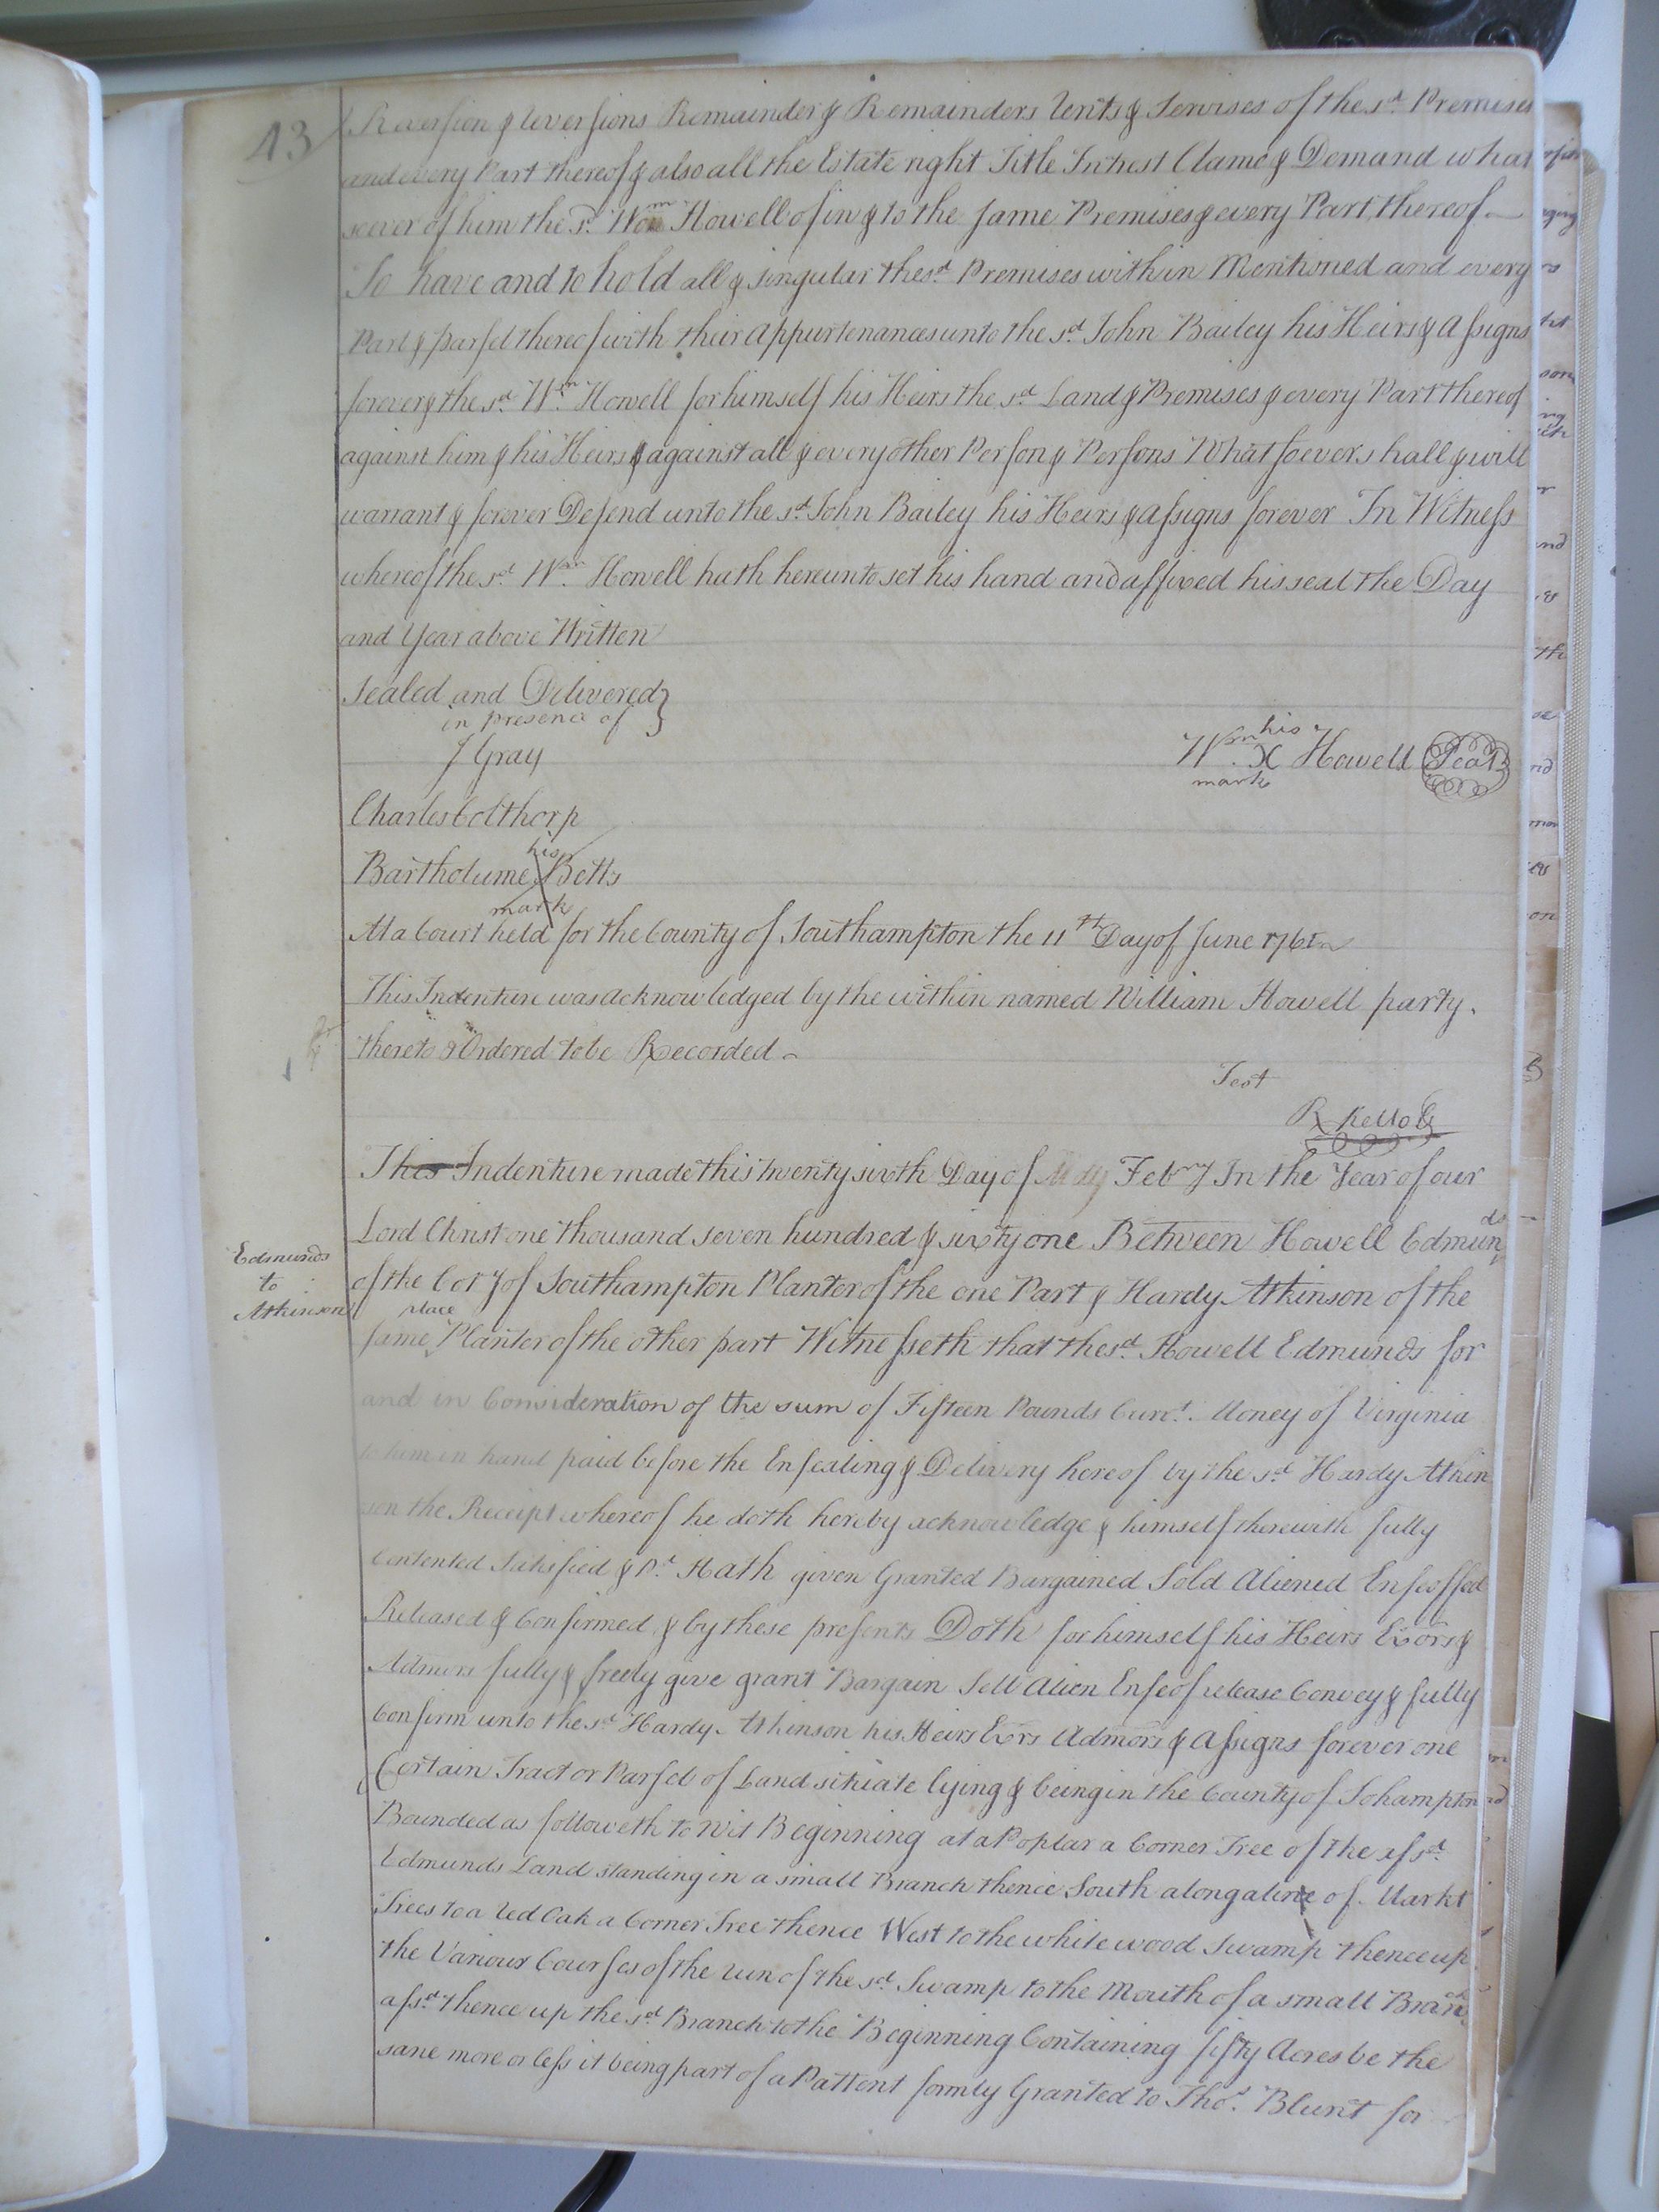 43
Reversion & Reversions Remainder & Remainders Rents & Servises of the sd. Premises
and every Part thereof & also all the Estate right Title Intrest Clame & Demand what
soever of him the sd. Wm Howell of in & to the same Premises & every Part thereof
To have and to hold all & singular the sd. Premises within Mentioned and every
Part & parsel thereof with their appurtenances unto the sd. John Bailey his Heirs & assigns
forever & the sd. Wm. Howell for himself his Heirs the sd. Land & Premises & every Part thereof
against him & his Heirs & against all & every other Person & Persons Whatsoever shall & will
warrant & forever Defend unto the sd. John Bailey his Heirs & assigns forever In Witness
whereof the sd. Wm. Howell hath hereunto set his hand and affixed his seal the Day
and Year above Written
Sealed and Delivered }
in presence of
J Gray
his
Wm. X Howell Seal
mark
Charles Colthorp
his
Bartholume X Betts
mark
At a Court held for the County of Southampton the 11th Day of June 1761
This Indenture was acknowledged by the within named William Howell party
thereto & Ordered to be Recorded
Test
R Kello C
This Indenture made this twenty sixth Day of Febry In the Year of our
Lord Christ one thousand seven hundred & sixty one Between Howell Edmunds
Edmunds
to
Atkinson
of the Coty of Southampton Planter of the one Part & Hardy Atkinson of the
same place Planter of the other part Witnesseth that the sd. Howell Edmunds for
and in Consideration of the sum of Fifteen Pounds Curt. Money of Virginia
to him in hand paid before the Ensealing & Delivery hereof by the sd. Hardy Atkin
son the Receipt whereof he doth hereby acknowledge & himself therewith fully
Contented Satisfied & Pd. Hath given Granted Bargained Sold Aliened Enfeoffed
Released & Confirmed & by these presents Doth for himself his Heirs Exors &
Admors fully & freely give grant Bargain Sell Alien Enfeof release Convey & fully
Confirm unto the sd. Hardy Atkinson his Heirs Exrs Admors & Assigns forever one
Certain Tract or Parsel of Land situate lying & being in the County of Sohampton
Bounded as followeth to wit Beginning at a Poplar a Corner Tree of the afsd.
Edmunds Land standing in a small Branch thence South along a line of Markt
Trees to a Red Oak a Corner Tree thence West to the white wood Swamp thence up
the Various Courses of the run of the sd. Swamp to the Mouth of a small Branch
afsd. thence up the sd. Branch to the Beginning Containing fifty Acres be the
same more or less it being part of a Pattent formly Granted to Thos. Blunt for